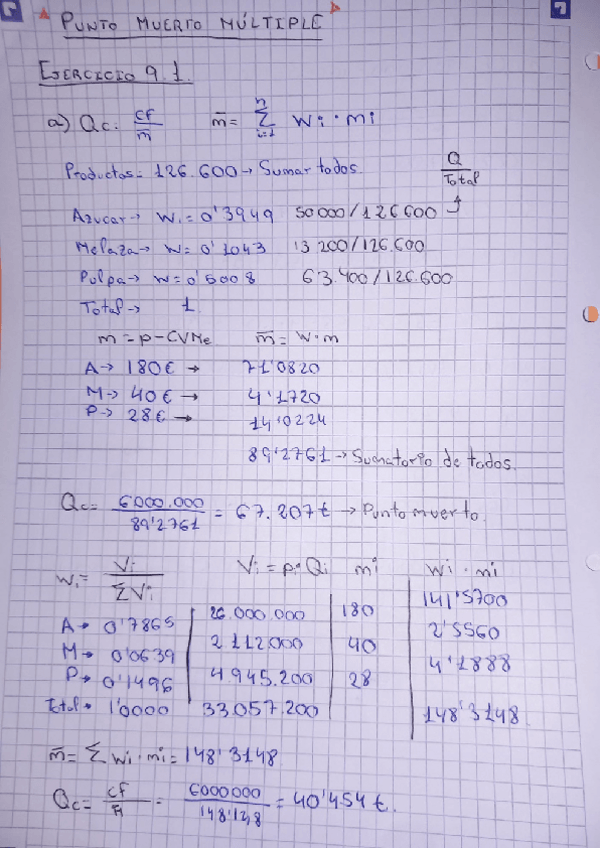 PUNTO MUERTO MÚLTIPLE
EJERCICIO 9.1.
a) Qc = CF / m̄    m̄ = Σ (i=1, n) Wi · mi
Productos = 126.600 → Sumar todos.    Q / Total
Azucar → W = 0'3949    50000/126600
Melaza → W = 0'1043    13200/126.600
Pulpa → W = 0'5008    63.400/126.600
Total → 1
m = p - CVMe    m̄ = W·m
A → 180€ → 71'0820
M → 40€ → 4'1720
P → 28€ → 14'0224
89'2761 → Sumatorio de todos.
Qc = 6000.000 / 89'2761 = 67.207t → Punto muerto.
Wi = Vi / ΣVi    Vi = pi·Qi    mi    Wi · mi
A → 0'7865    26.000.000    180    141'5700
M → 0'0639    2112.000    40    2'5560
P → 0'1496    4945.200    28    4'1888
Total → 1'0000    33.057.200    148'3148
m̄ = Σ Wi · mi = 148'3148
Qc = CF / m̄ = 6000000 / = 40'454 t.